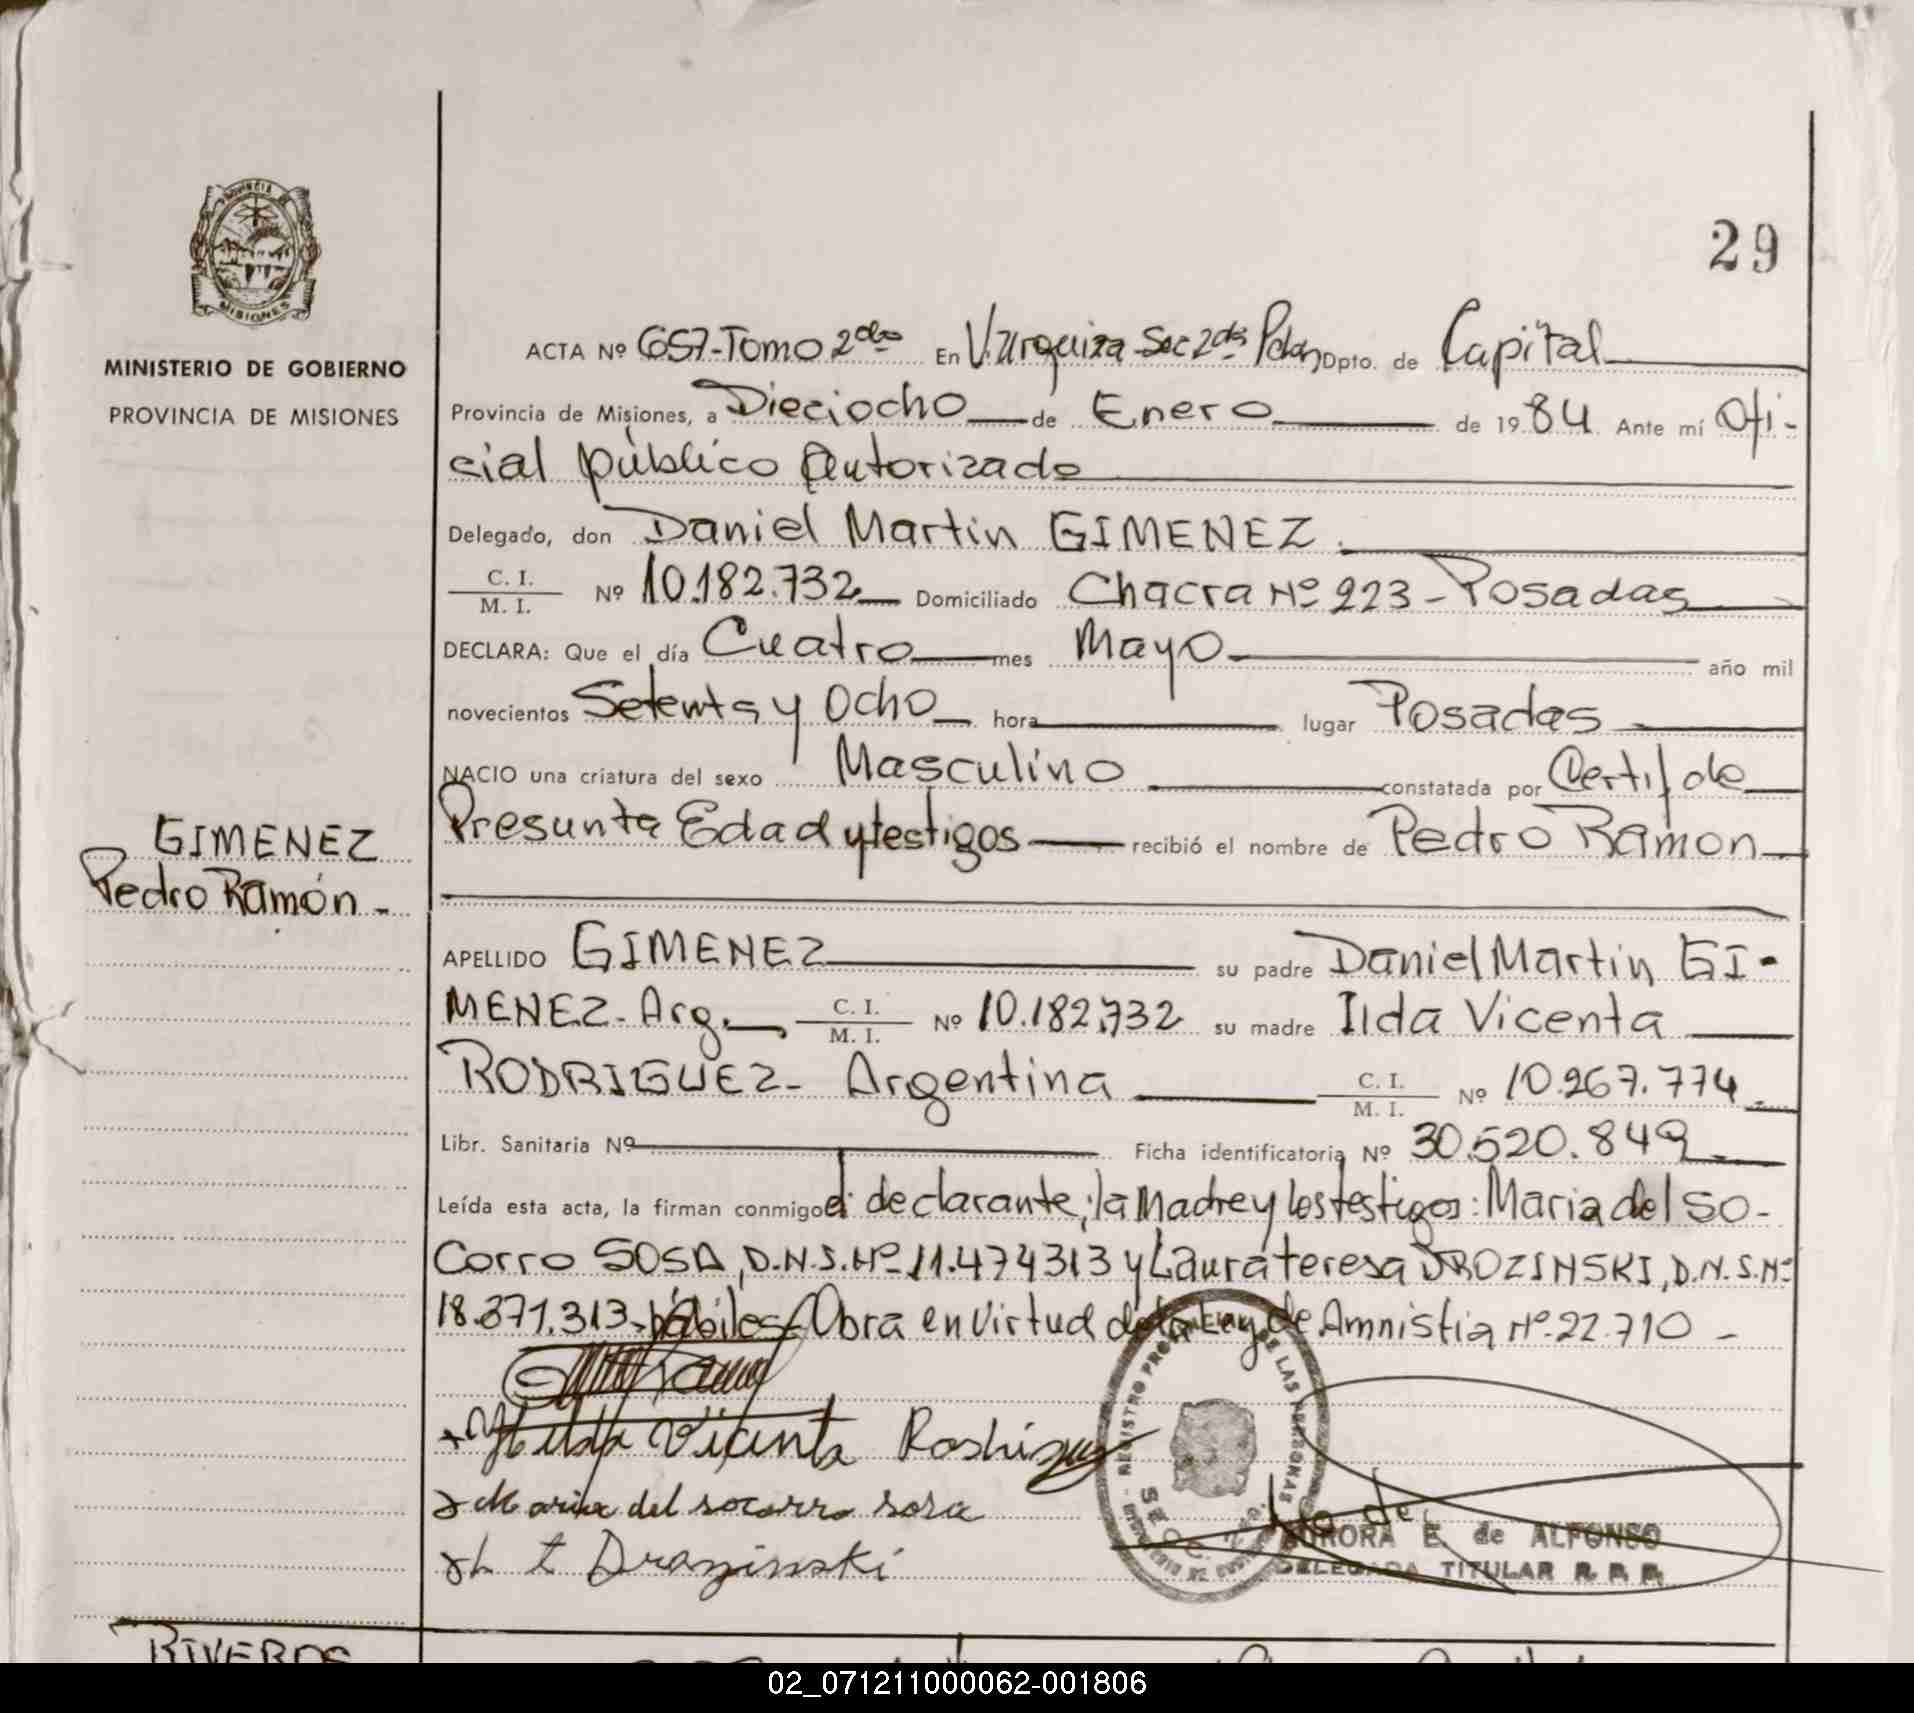 29
PROVINCIA DE
MISIONES
MINISTERIO DE GOBIERNO
PROVINCIA DE MISIONES
ACTA Nº 657-Tomo 2do En V. Urquiza-Sec 2da Pdas Dpto. de Capital
Provincia de Misiones, a Dieciocho de Enero de 1984 Ante mí Ofi-
cial público Autorizado
Delegado, don Daniel Martin GIMENEZ.
C. I.
M. I. Nº 10.182.732 Domiciliado Chacra Nº 223 - Posadas
DECLARA: Que el día Cuatro mes Mayo año mil
novecientos Setenta y Ocho hora lugar Posadas
NACIO una criatura del sexo Masculino constatada por Certif de
Presunta Edad y testigos recibió el nombre de Pedro Ramon
GIMENEZ
Pedro Ramón -
APELLIDO GIMENEZ su padre Daniel Martin GI-
MENEZ- Arg. C. I.
M. I. Nº 10.182.732 su madre Ilda Vicenta
RODRIGUEZ- Argentina C. I.
M. I. Nº 10.267.774
Libr. Sanitaria Nº Ficha identificatoria Nº 30.520.849
Leída esta acta, la firman conmigo el declarante; la Madre y los testigos: Maria del SO-
Corro SOSA, D.N.I. Nº 11.474313 y Laura teresa DROZINSKI, D.N.I. Nº
18.371.313, hábiles- Obra en virtud de la Ley de Amnistia Nº 22.710 -
Hilda Vicenta
Maria del socorro sosa
L t Drozinski
REGISTRO PROVINCIAL DE LAS PERSONAS
AURORA E. de ALFONSO
DELEGADA TITULAR R. P. P.
RIVEROS
02_071211000062-001806